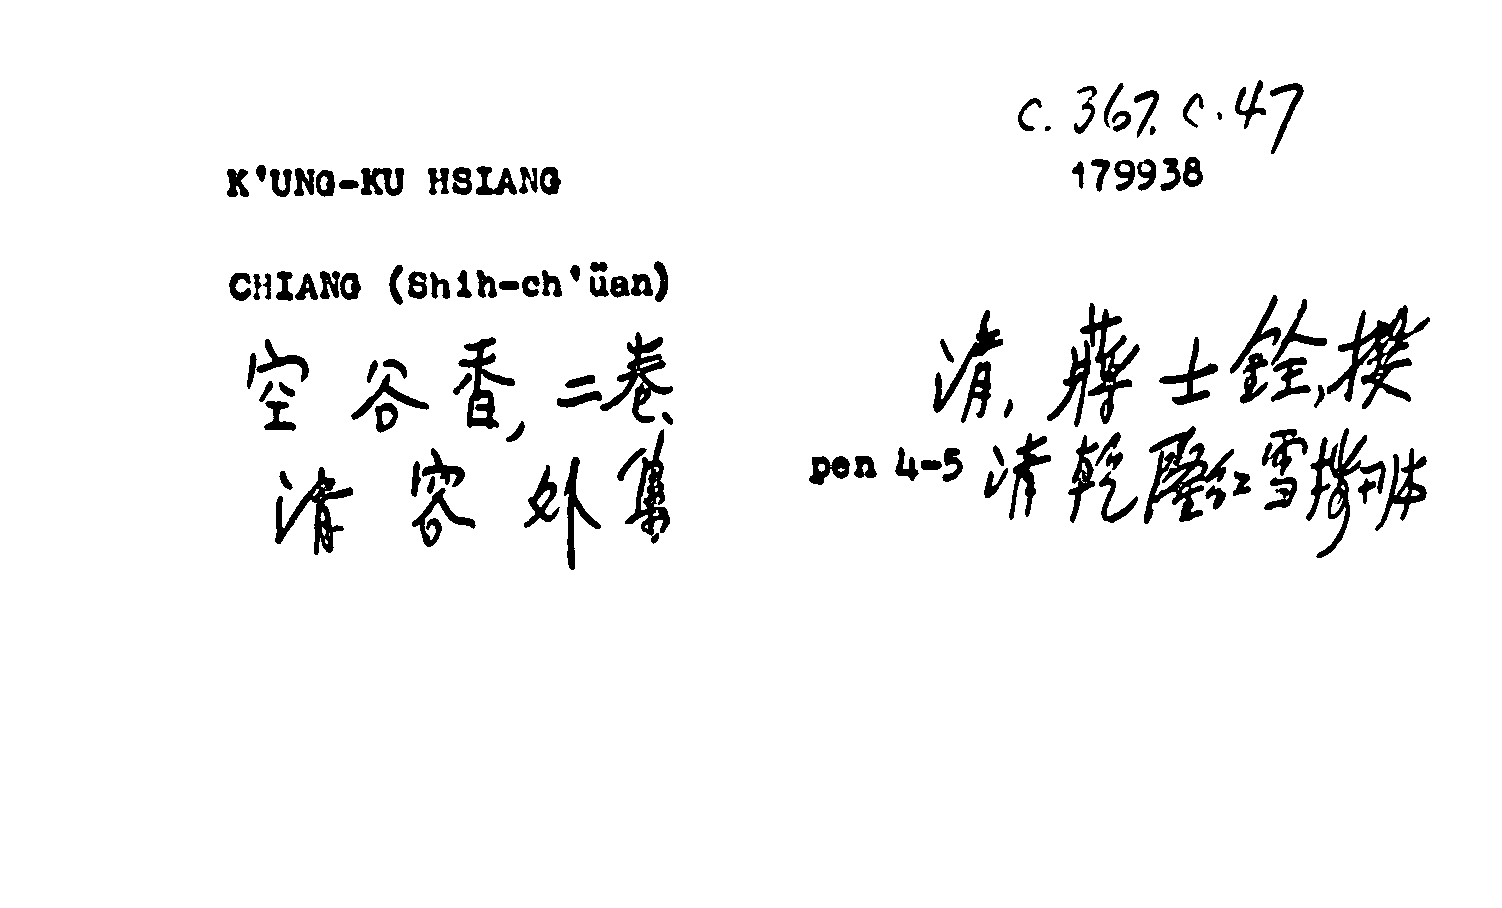 c. 367. c. 47
179938
K'UNG-KU HSIANG
CHIANG (Shih-ch'üan)
空谷香, 二卷、
清, 蔣士銓, 撰
清容外集
pen 4-5 清乾隆紅雪樓刊本